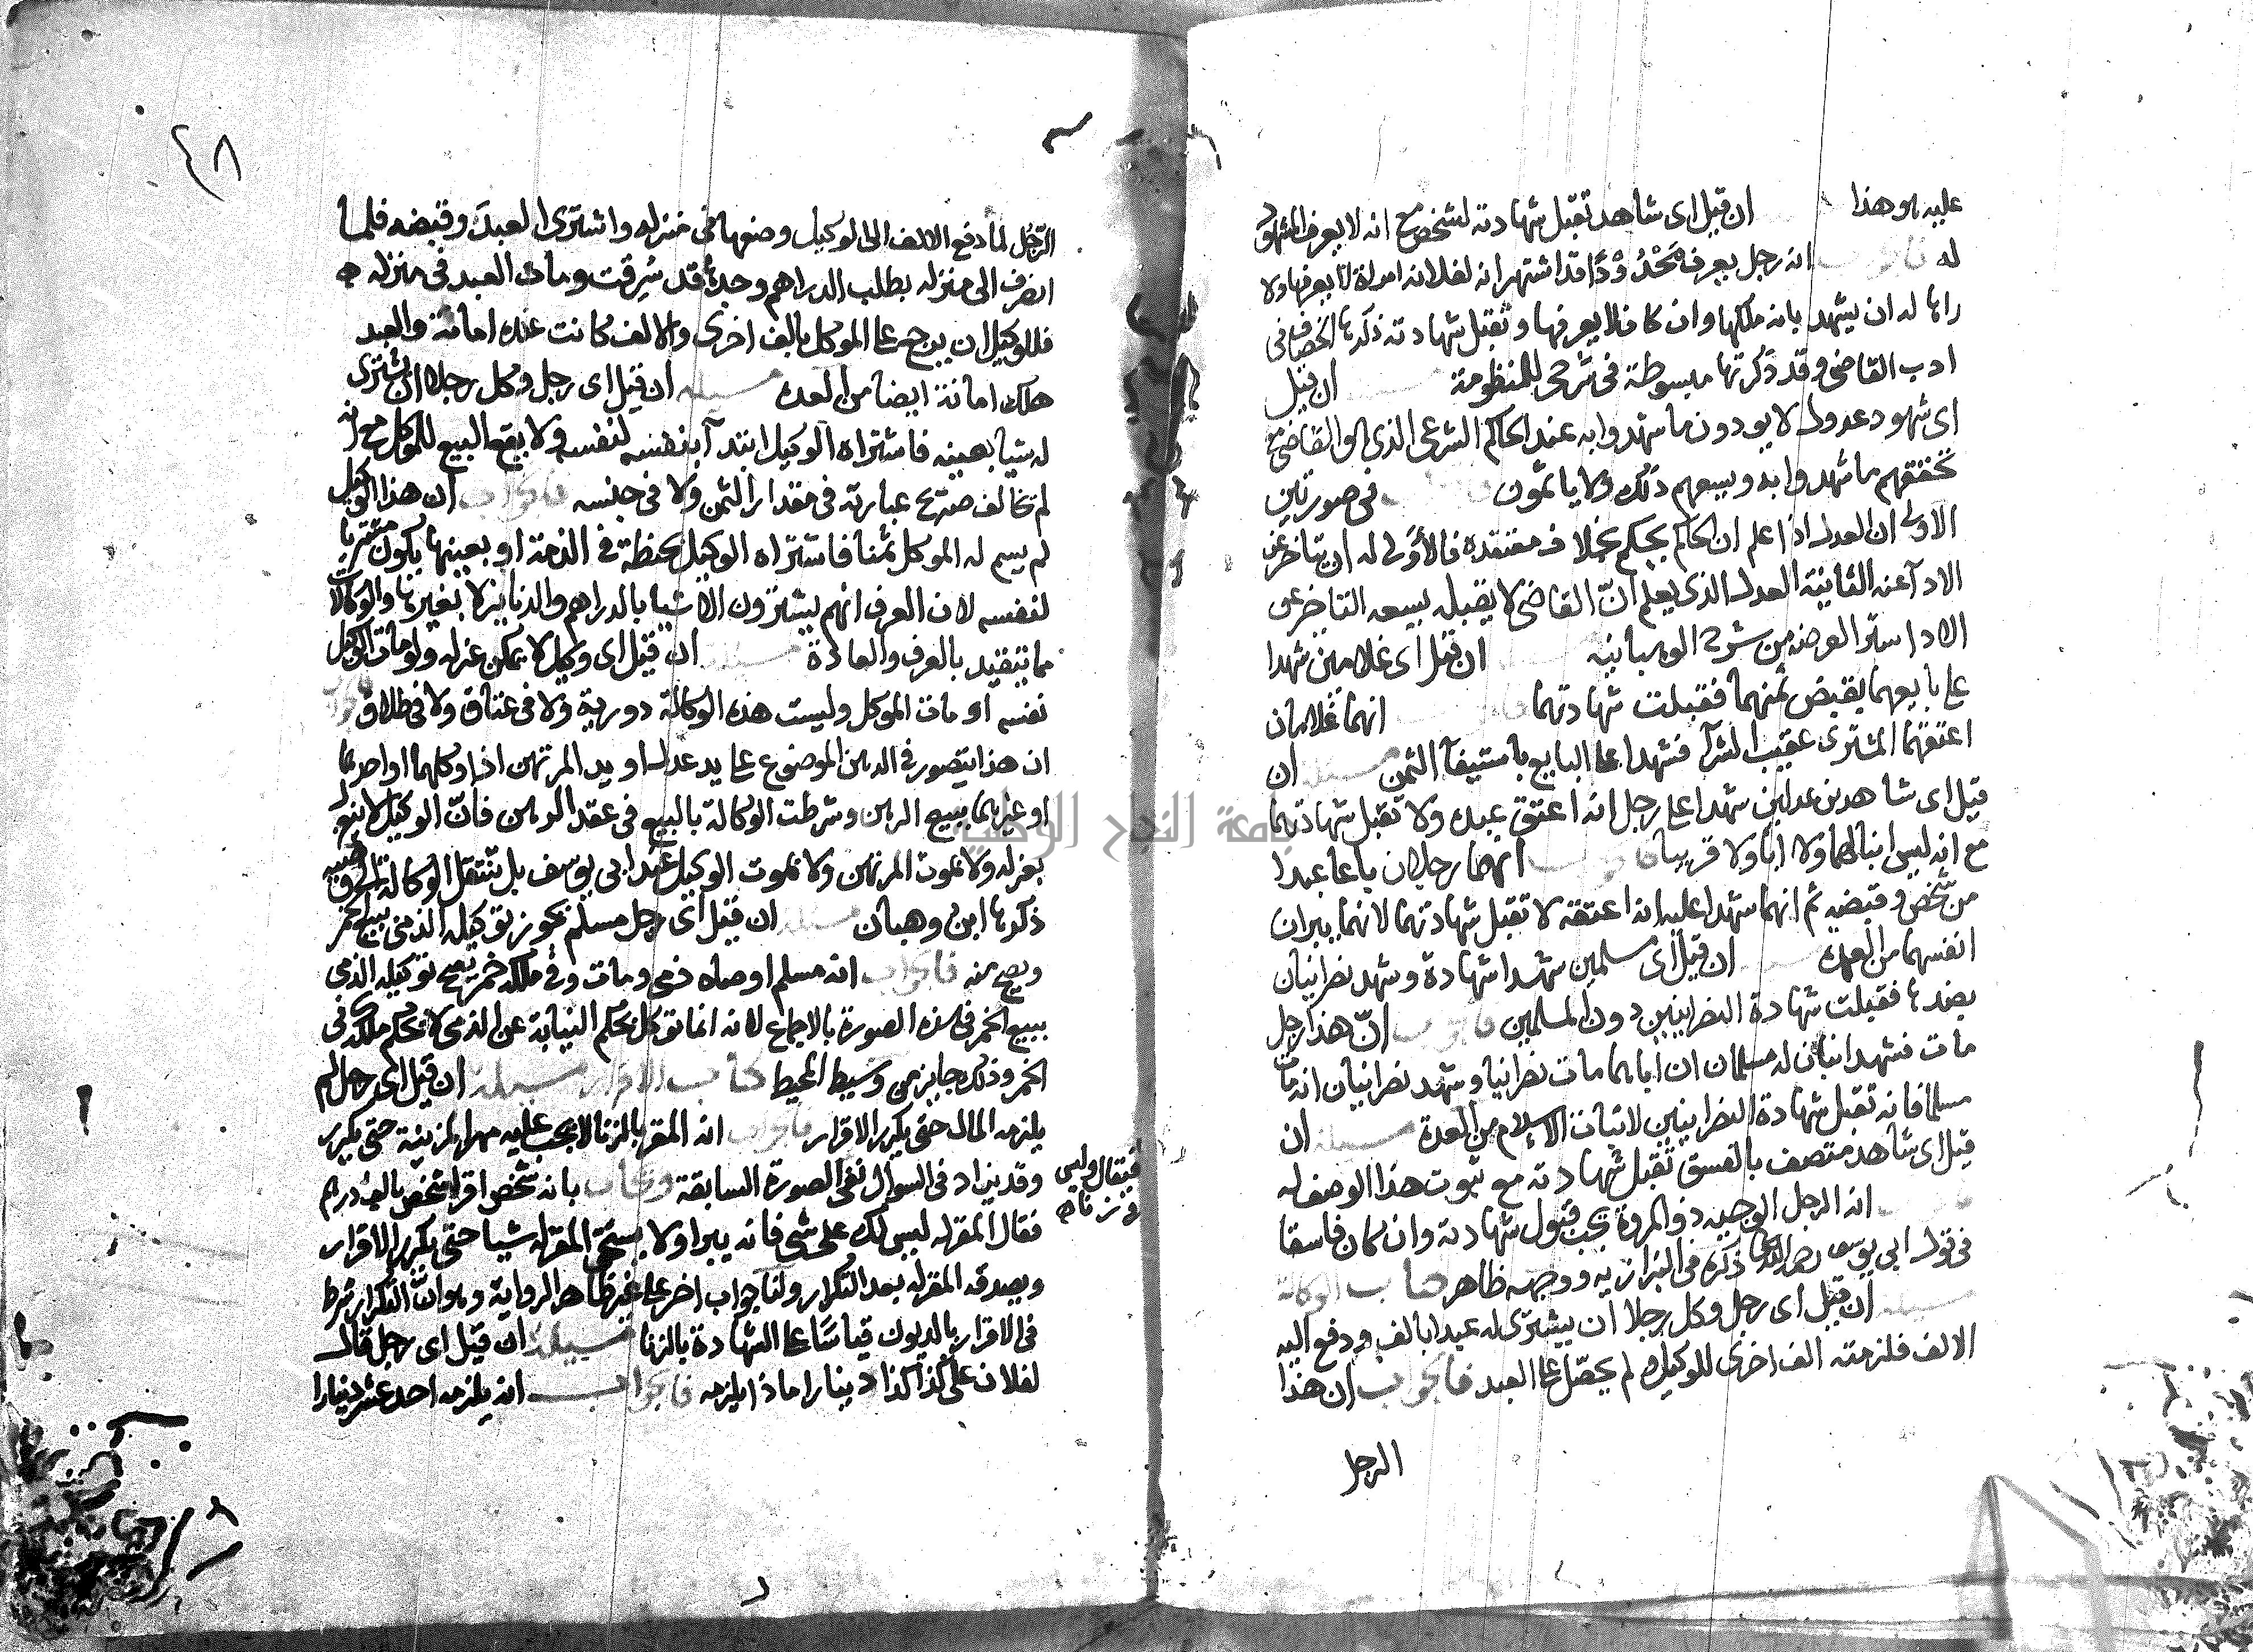 عليه هو هذا ان قيل اى شاهد تقبل شهادته لشخص مع انه لا يعرف المشهود
له فالجواب انه رجل يعرف محدودًا قد اشتهر انه لفلانه امراة لا يعرفها ولا
راها له ان يشهد بانه ملكها وان كان لا يعرفها وتقبل شهادته ذكرها الخصاف فى
ادب القاضى وقد ذكرتها مبسوطة فى شرحى للمنظومة ان قيل
اى شهود عدول لا يودون ما شهدوا به عند الحاكم الشرعى الذى هو القاضى مع
تحققهم ما شهدوا به ويسعهم ذلك ولا ياثمون فى صورتين
الاولى ان العدل اذا علم ان الحاكم يحكم بخلاف معتقده فالأولى له ان يتاخر عن
الادآ عنه الثانية العدل الذى يعلم انّ القاضى لا يقبله يسعه التاخر عن
الادا ستر العرضه من شرح الوهبانيه ان قيل اى غلامين شهدا
على بايعهما بقبض ثمنهما فقبلت شهادتهما انهما غلامان
اعتقهما المشترى عقيب الشرآ فشهدا على البايع باستيفآ الثمن مسيله ان
قيل اى شاهدين عدلين شهدا على رجل انه اعتق عبده ولا تقبل شهادتهما
مع انه ليس ابنا لهما ولا ابا ولا قريبا فالجواب انهما رجلان باعا عبدا
من شخص وقبضه ثم انهما شهدا عليه انه اعتقه لا تقبل شهادتهما لانهما يبران
انفسهما من العهدة ان قيل اى مسلمين شهدا شهادة وشهد نصرانيان
بضدها فقبلت شهادة النصرانيين دون المسلمين فالجواب انّ هذا رجل
مات فشهد ابنان له مسلمان ان اباهما مات نصرانيا وشهد نصرانيان انه مات
مسلما فانه تقبل شهادة النصرانيين لاثبات الاسلام من العدة مسيله ان
قيل اى شاهد متصف بالفسق تقبل شهادته مع ثبوت هذا الوصف له
انه الرجل الوجيه ذو المروة يجب قبول شهادته وان كان فاسقا
فى قول ابى يوسف رحمه الله تعالى ذكره فى البزازيه ووجهه ظاهر كتاب الوكالة
مسيله ان قيل اى رجل وكل رجلا ان يشترى له عبدا بالف ودفع اليه
الالف فلزمته الف اخرى للوكيل ولم يحصل على العبد فالجواب ان هذا
الرجل
٤٨
الرّجُل لما دفع الالف الى الوكيل وضعها فى منزله واشترى العبد وقبضه فلما
انصرف الى منزله يطلب الدراهم وجدها قد سُرِقت ومات العبد فى منزله
فللوكيل ان يرجع على الموكل بالف اخرى والالف كانت عنده امانة والعبد
هلك امانة ايضا من العدة مسيله ان قيل اى رجل وكل رجلا ان يشترى
له شيا بعينه فاشتراه الوكيل ابتدآ بنفسه لنفسه ولا يقع البيع للموكل مع انه
لم يخالف صريح عبارته فى مقدار الثمن ولا فى جنسه فالجواب ان هذا الوكيل
لم يسم له الموكل ثمنا فاشتراه الوكيل بحنطة فى الذمة او بعينها يكون مشتريا
لنفسه لان العرف انهم يشترون الاشيا بالدراهم والدنانير لا بغيرها والوكالات
مما يتقيد بالعرف والعادة مسيله ان قيل اى وكيل لا يمكن عزله ولو مات الوكيل
نفسه او مات الموكل وليست هذه الوكالة دورية ولا فى عتاق ولا فى طلاق فالجواب
ان هذا يتصور فى الرهن الموضوع على يد عدل او يد المرتهن اذا وكلهما او احدهما
او غيرهما ببيع الرهن وشرطت الوكالة بالبيع فى عقد الرهن فانّ الوكيل لا ينعزل
بعزله ولا بموت المرتهن ولا بموت الوكيل عند ابى يوسف بل تنتقل الوكالة الى وصيه
ذكرها ابن وهبان مسيله ان قيل اى رجل مسلم يجوز توكيله الذمى ببيع الخمر
ويصح منه فالجواب انه مسلم اوصاه ذمى ومات وفى ملكه خمر يصح توكيله الذمى
ببيع الخمر فى هذه الصورة بالاجماع لانه انما توكل بحكم النيابة عن الذمى لا بحكم ملكه فى
الخمر وذلك جايز من وسيط المحيط كتاب الاقرار مسيله ان قيل اى رجل لم
يلزمه المال حتى يكرر الاقرار فالجواب انه المقر بالزنا لا يجب عليه مهر المزنية حتى يكرر
وقد يزاد فى السوال نفى الصورة السابقة ويجاب بانه شخص اقر لشخص بالف درهم
فيقال وليس
فى زناه
فقال المقر له ليس لك على شى فانه يبرا ولا يستحق المقر له شيا حتى يكرر الاقرار
ويصدقه المقر له بعد التكرار ولنا جواب اخر على غير ظاهر الرواية وهو انّ التكرار شرط
فى الاقرار بالديون قياسًا على الشهادة بالزنا مسيله ان قيل اى رجل قال
لفلان علىّ كذا كذا دينارا ماذا يلزمه فالجواب انه يلزمه احد عشر دينارا
جامعة النجاح الوطنية